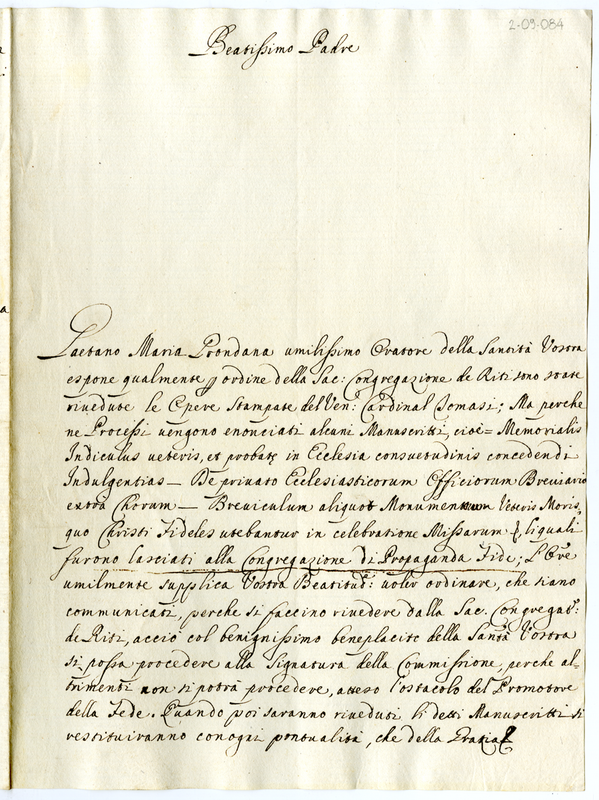 2-09-084
Beatissimo Padre
Gaetano Maria Prondana umilissimo Oratore della Santità Vostra
espone qualmente p ordine della Sac: Congregazione de Riti sono state
rivedute le Opere stampate del Ven: Cardinal Tomasi; Ma perche
ne Processi vengono enonciati alcuni Manuscritti, cioè = Memorialis
Indiculus veteris, et probatę in Ecclesia consuetudinis concedendi
Indulgentias — De privato Ecclesiasticorum Officiorum Breviario
extra Chorum — Breviculum aliquot Monumentorum Veteris Moris,
quo Christi Fideles utebantur in celebratione Missarum, li quali
furono lasciati alla Congregazione di Propaganda Fide; L'Ore
umilmente supplica Vostra Beatitud: voler ordinare, che siano
communicati, perche si faccino rivedere dalla Sac. Congregat:
de Riti, acciò col benignissimo beneplacito della Santà Vostra
si possa procedere alla Signatura della Commissione, perche al=
trimenti non si potrà procedere, atteso l'ostacolo del Promotore
della Fede. Quando poi saranno riveduti li detti Manuscritti si
restituiranno con ogni pontualità, che della Grazia